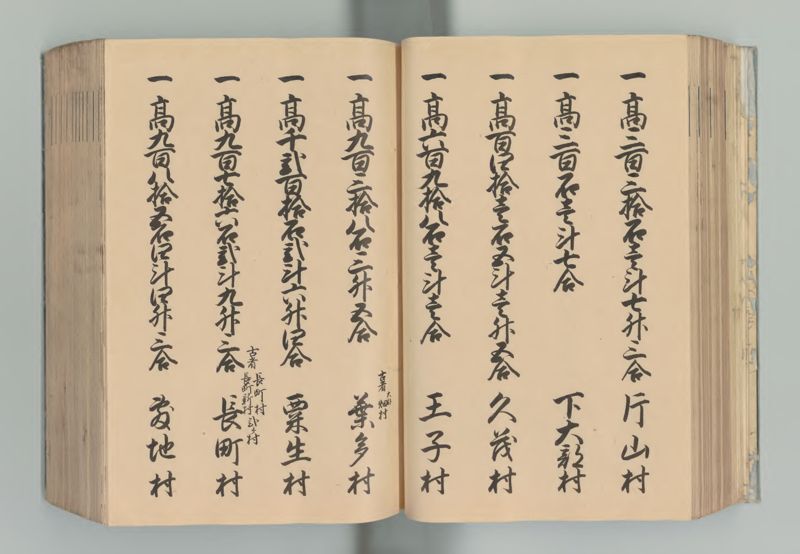 一 高三百三拾石壱斗七升三合 片山村
一 高三百石壱斗七合 下大部村
一 高百四拾壱石五斗壱升五合 久茂村
一 高六百九拾八石壱斗壱合 王子村
一 高九百三拾八石三升五合 葉多村
古者 畑村
一 高千弐百拾石弐斗六升四合 粟生村
一 高九百七拾六石弐斗九升三合 長町村
古者 長町村 長町新村 弐ヶ村
一 高九百八拾五石四斗四升三合 敷地村